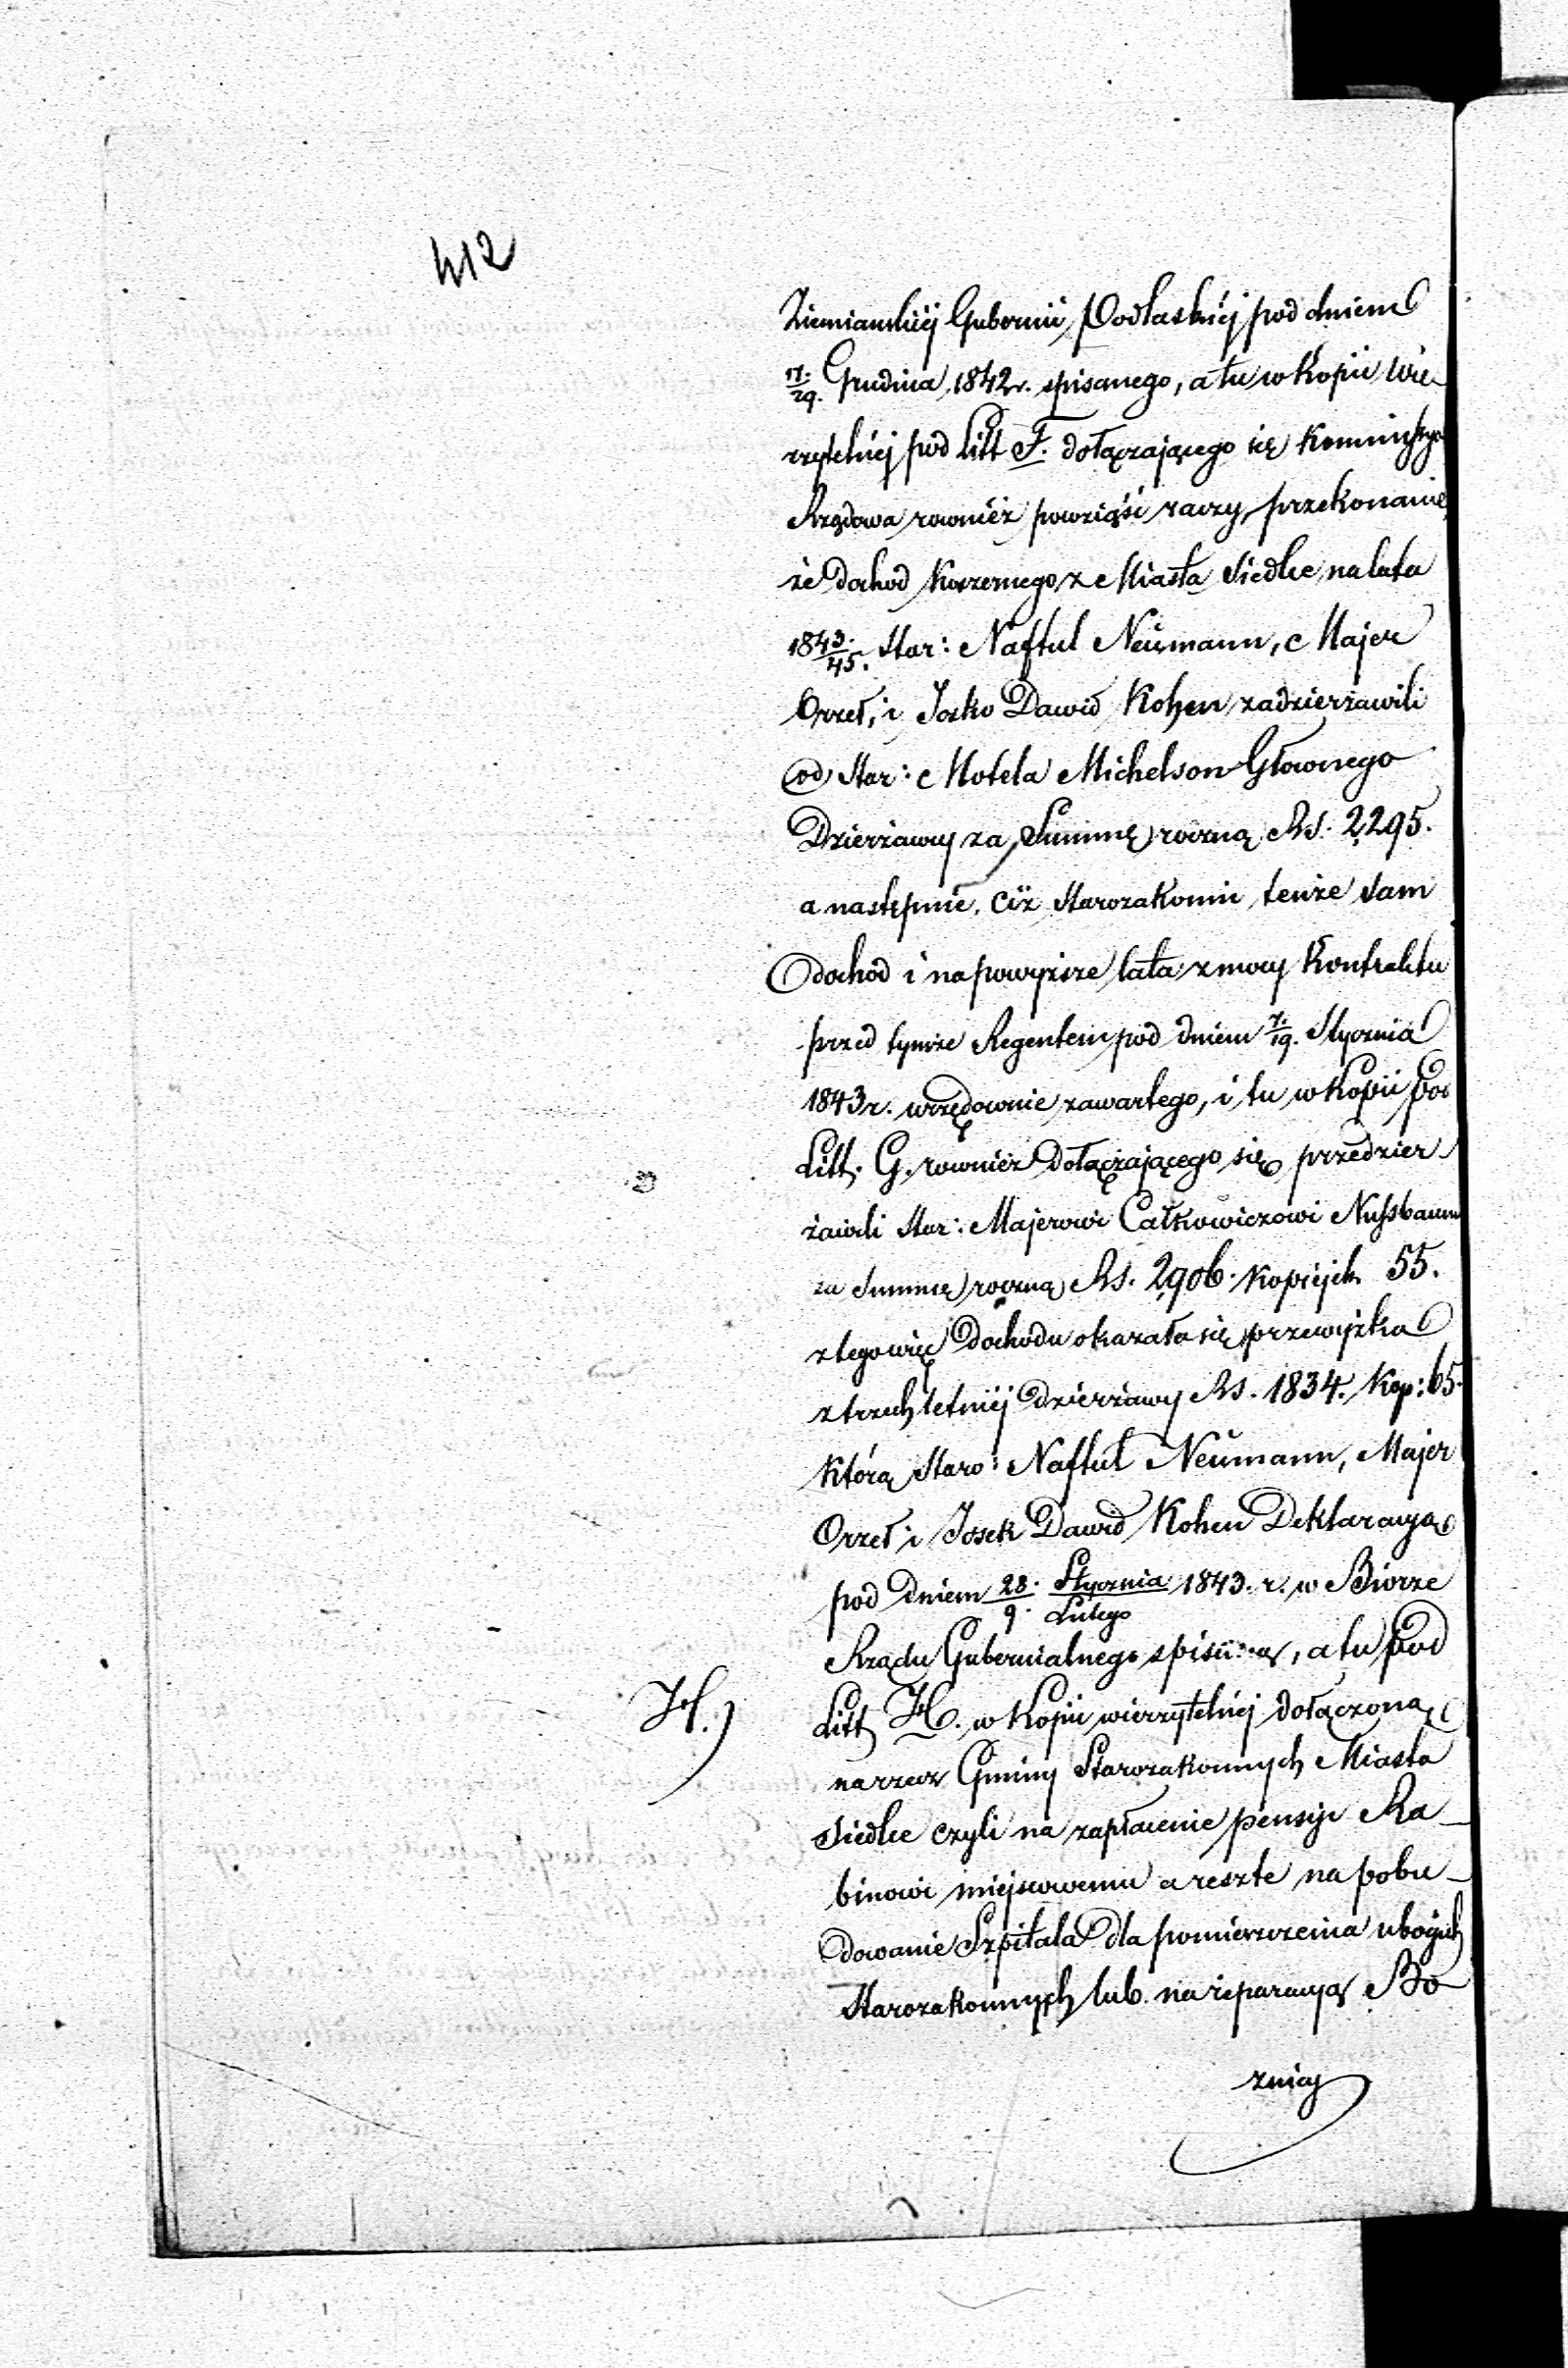 412
Ziemiańskiéj Gubernii Podlaskiéj pod dniem
17./29. Grudnia 1842r. spisanego, a tu w Kopii wie-
rzytelnéj pod Litt F. dołączającego się Kommissya
Rządowa rownież powziąść raczy przekonanie,
że dochod Koszernego z Miasta Siedlce na lata
1843./45. Star: Naftul Neŭmann, Majer
Orzeł, i Josko Dawid Kohen zadzierżawili
od Star: Motela Michelson Głownego
Dzierżawcy za Summę roczną Rs. 2,295.
a następnie, ciż Starozakonni tenże sam
dochod i na powyższe lata z mocy Kontraktu
przed tymże Regentem pod dniem 7./19. Stycznia
1843r. urzędownie zawartego, i tu w Kopii pod
Litt. G. rownież dołączającego się przedzier-
żawili Star: Majerowi Całkowiczowi Nussbaum
za Summę roczną Rs. 2,906. Kopiejek 55.
z tego więc Dochodu okazała się przewyżka
z trzechletniéj dzierżawy Rs. 1834. Kop: 65.
którą Staro: Naftul Neŭmann, Majer
Orzeł i Josek Dawid Kohen Deklaracyą
pod dniem 28. Stycznia/9. Lutego 1843. r. w Biorze
Rządu Gubernialnego spisaną, a tu pod
H.) Litt H. w Kopii wierzytelnéj dołączoną
na rzecz Gminy Starozakonnych Miasta
Siedlce czyli na zapłacenie pensyi Ra-
binowi miejscowemu a reszte na pobu-
dowanie Szpitala dla pomieszczenia ubogich
Starozakonnych lub na reparacyą Bo
żnicy